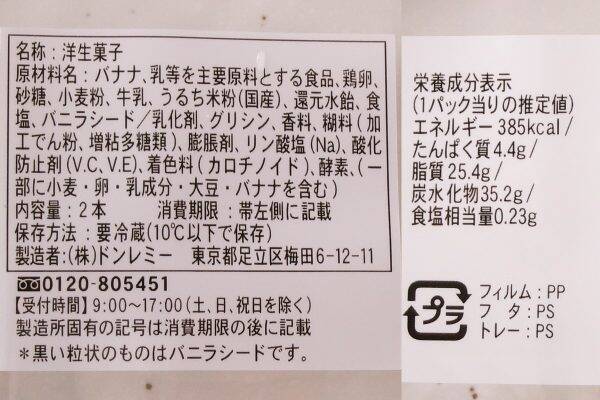 名称：洋生菓子
原材料名：バナナ、乳等を主要原料とする食品、鶏卵、
砂糖、小麦粉、牛乳、うるち米粉(国産)、還元水飴、食
塩、バニラシード／乳化剤、グリシン、香料、糊料(加
工でん粉、増粘多糖類)、膨脹剤、リン酸塩(Na)、酸化
防止剤(V.C、V.E)、着色料(カロチノイド)、酵素、(一
部に小麦・卵・乳成分・大豆・バナナを含む)
内容量：2本　消費期限：帯左側に記載
保存方法：要冷蔵(10℃以下で保存)
製造者：(株)ドンレミー　東京都足立区梅田6-12-11
0120-805451
【受付時間】9:00～17:00(土、日、祝日を除く)
製造所固有の記号は消費期限の後に記載
＊黒い粒状のものはバニラシードです。
栄養成分表示
(1パック当りの推定値)
エネルギー385kcal/
たんぱく質4.4g/
脂質25.4g/
炭水化物35.2g/
食塩相当量0.23g
プラ
フィルム：PP
フタ：PS
トレー：PS